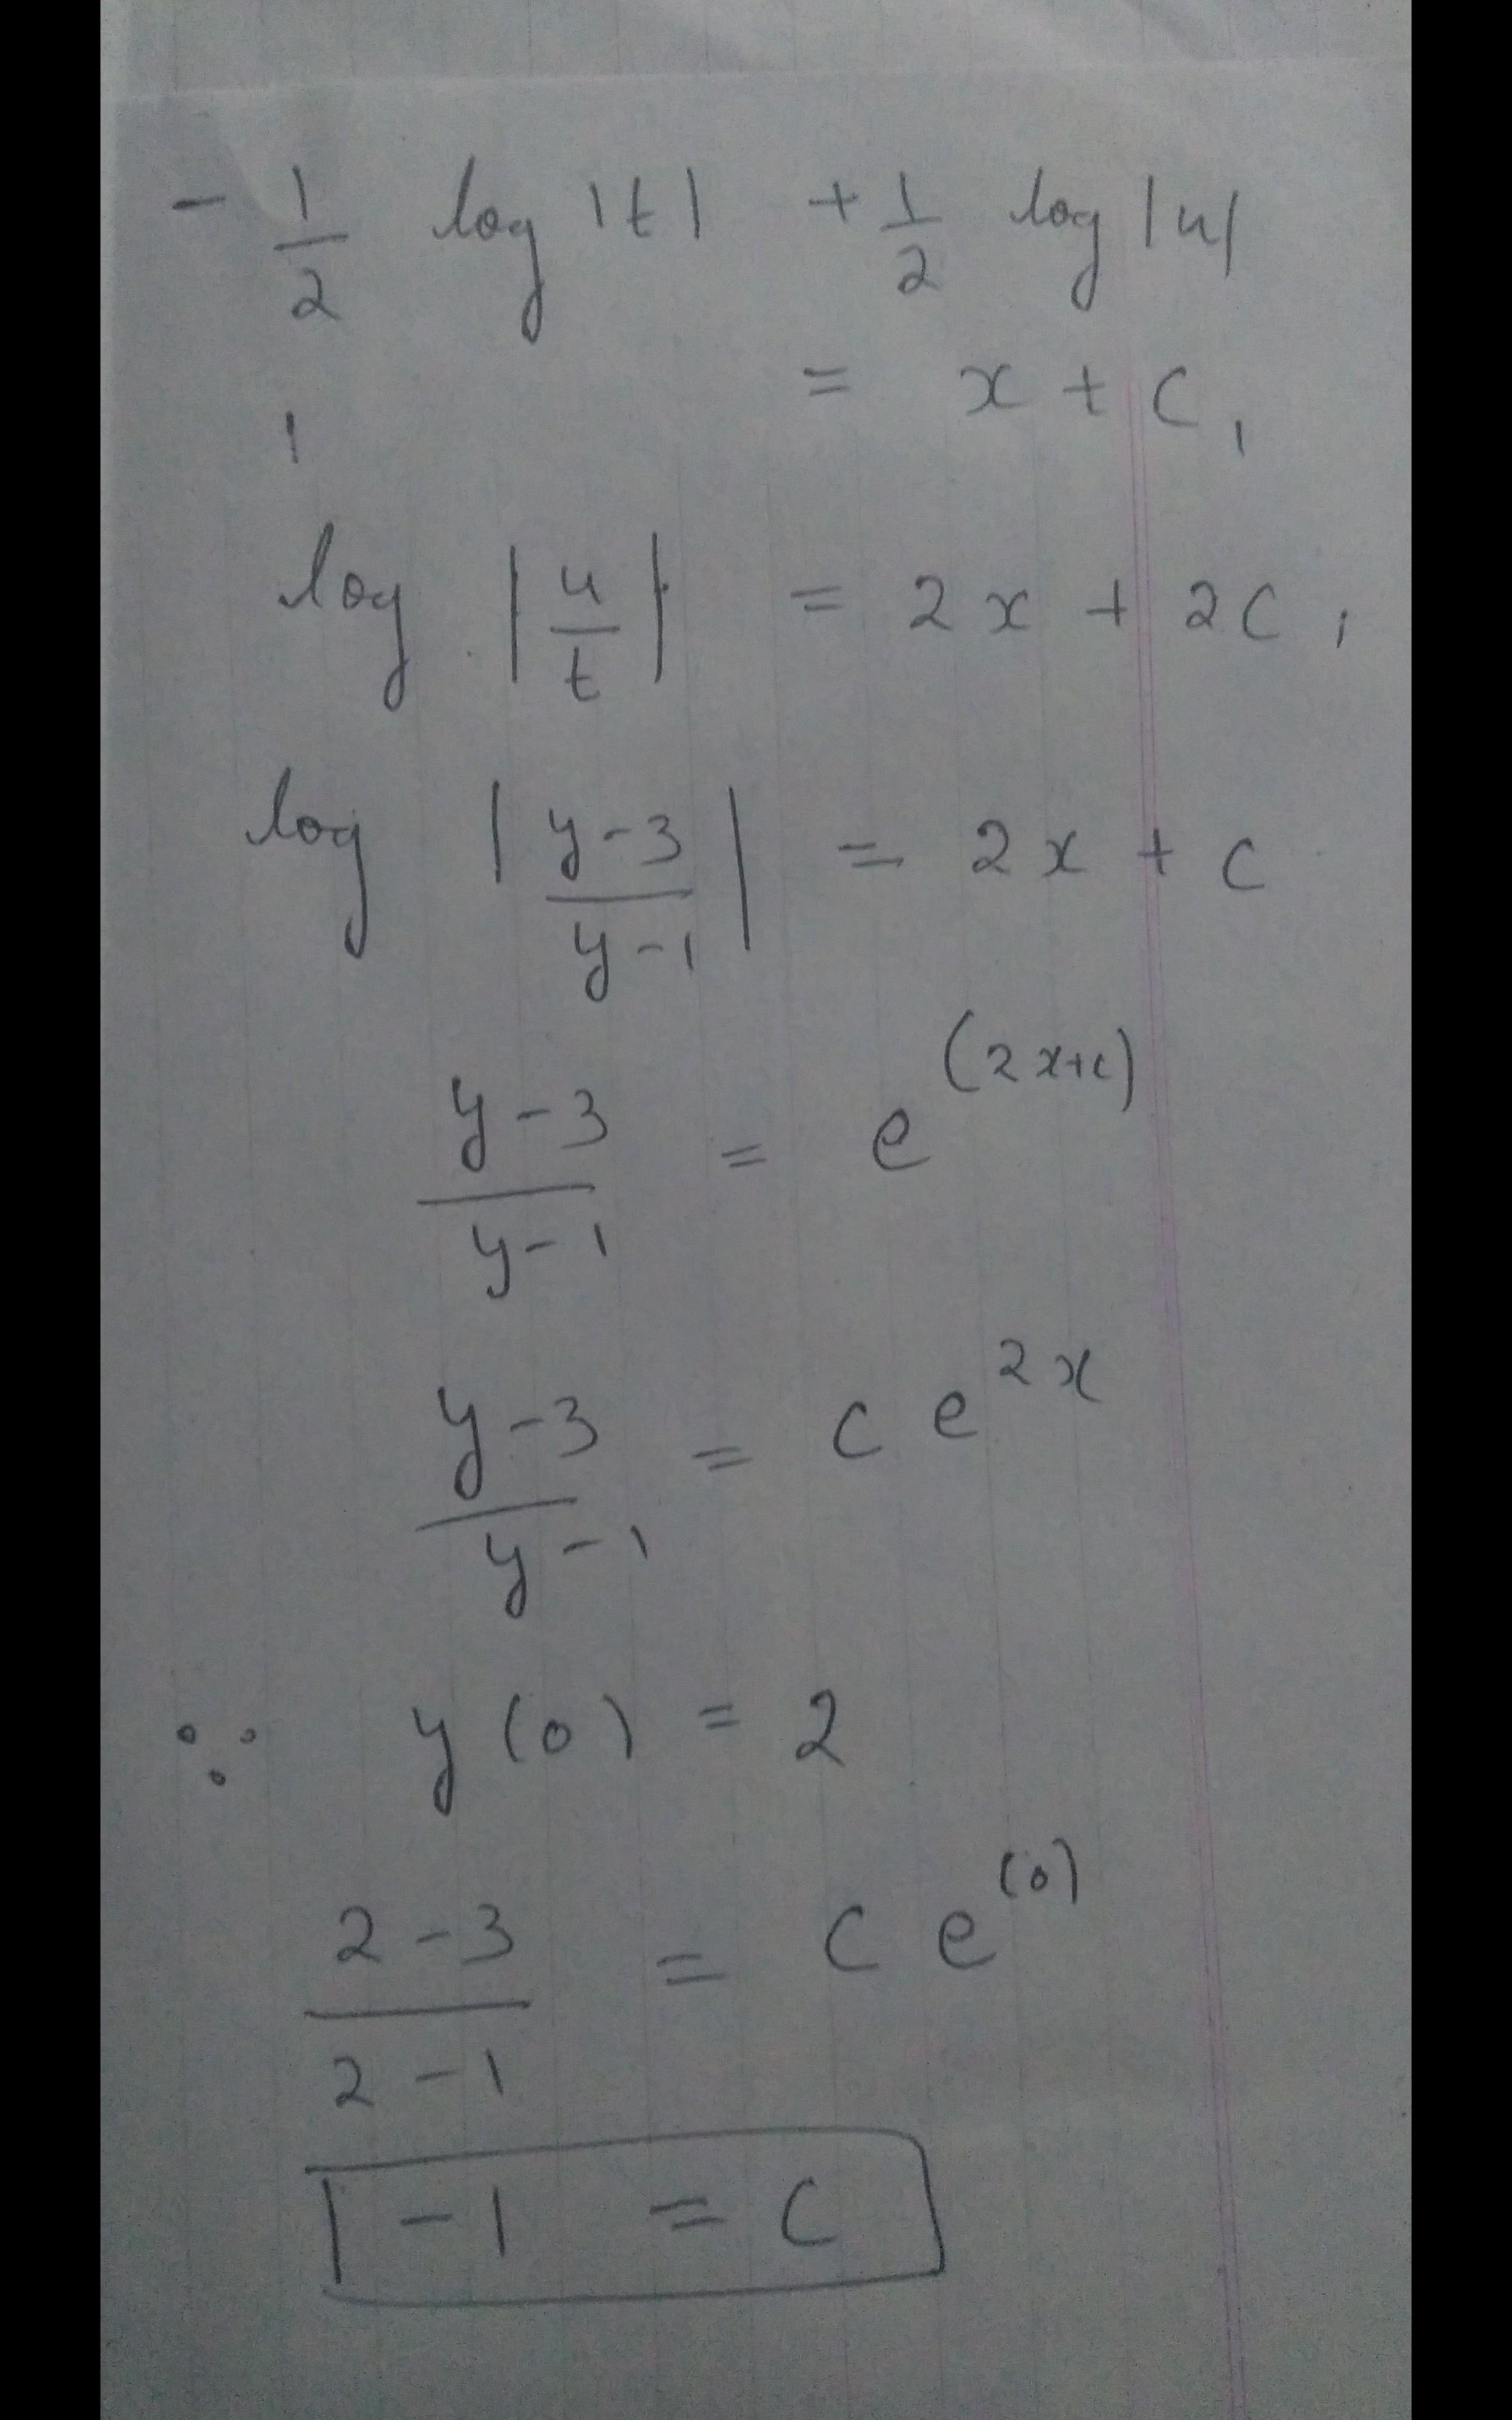 - 1/2 log |t| + 1/2 log |u|
= x + c₁
log |u/t| = 2x + 2c₁
log |y-3/y-1| = 2x + c
y-3/y-1 = e^(2x+c)
y-3/y-1 = c e^2x
∵ y(0) = 2
2-3/2-1 = c e^(0)
-1 = c